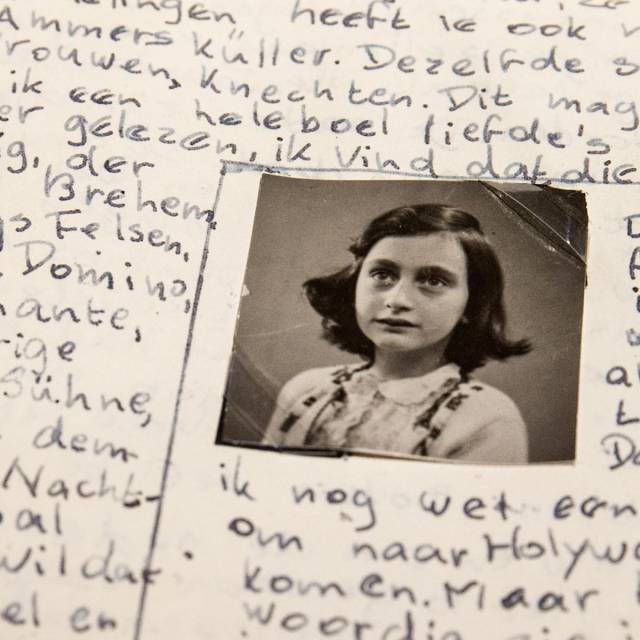 heeft ie ook
Ammers Küller. Dezelfde
rouwen, Knechten. Dit mag
ik een heleboel liefde's
er gelezen, ik vind dat die
g, der
Brehem
s Felsen,
Domino,
ante,
rige
Sühne,
dem
Nacht-
al
wil dat
el en
ik nog wet een
om naar Holyw
komen. Maar
woordig